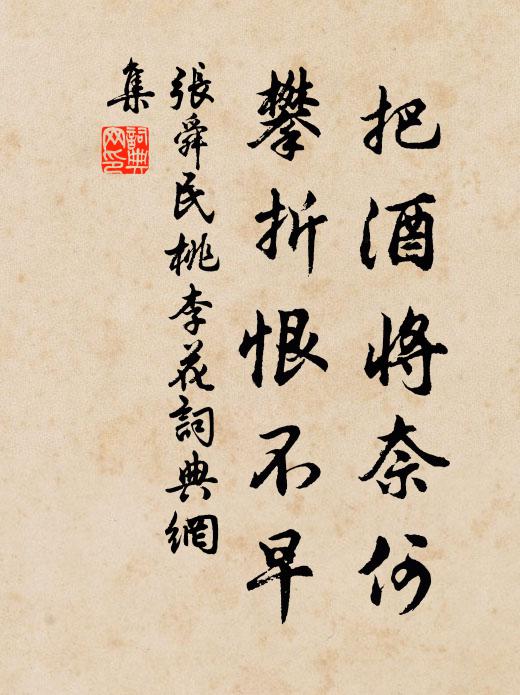 把酒將奈何
攀折恨不早
張舜民桃李花詞典網
集
詞典
网印